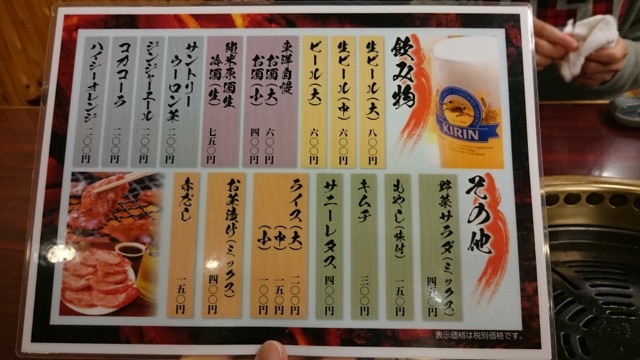 飲み物
生ビール(大) 八〇〇円
生ビール(中) 六〇〇円
ビール(大) 六〇〇円
東洋自慢
お酒(大) 六〇〇円
お酒(小) 四〇〇円
純米原酒生
冷酒(生) 七五〇円
サントリー
ウーロン茶 二〇〇円
ジンジャーエール 二〇〇円
コカコーラ 二〇〇円
ハイシーオレンジ 二〇〇円
KIRIN
その他
野菜サラダ(ミックス) 四五〇円
もやし(味付) 一五〇円
キムチ 三〇〇円
サニーレタス 四〇〇円
ライス(大) 二〇〇円
(中) 一五〇円
(小) 一〇〇円
お茶漬け(ミックス) 四〇〇円
赤だし 一五〇円
表示価格は税別価格です。